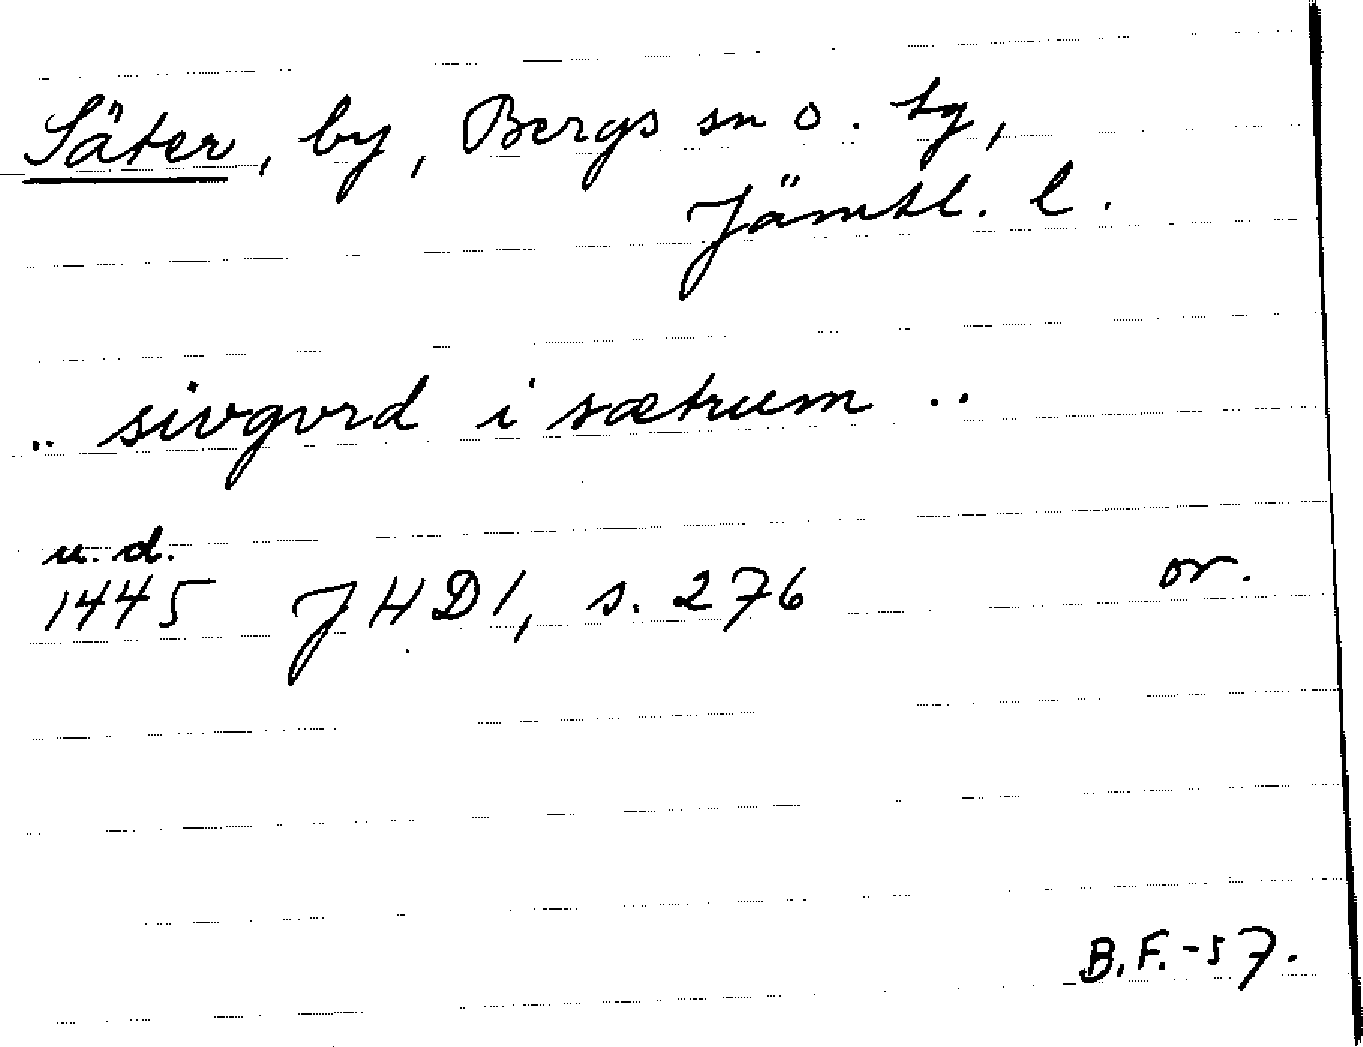 Säter, by, Bergs sn o. tg,
Jämtl. l.
.. sivgvrd i sætrum ..
u. d.
1445 JHD1, s. 276 or.
B.F.-57.